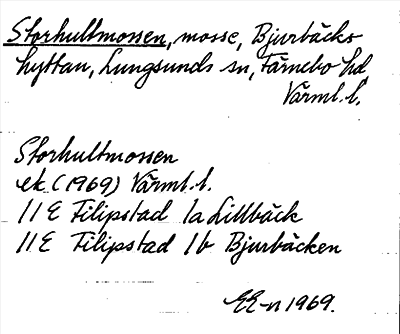 Storhultmossen, mosse, Bjurbäcks
hyttan, Lungsunds sn, Färnebo hd,
Värml. l.
Storhultmossen
ek (1969) Värml. l.
11 E Filipstad 1a Lillbäck
11 E Filipstad 1b Bjurbäcken
EE-n 1969.